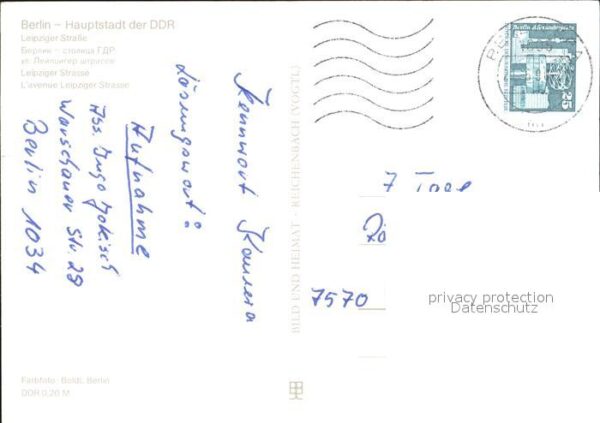 Berlin – Hauptstadt der DDR
Leipziger Straße
Берлин – столица ГДР
ул. Лейпцигер штрассе
Leipziger Strasse
L'avenue Leipziger Strasse
Kennwort Kamera
Lösungswort:
Aufnahme
Ass. Ingo Jokisch
Warschauer Str. 28
Berlin 1034
Farbfoto: Boldt, Berlin
DDR 0,20 M
BILD UND HEIMAT – REICHENBACH (VOGTL)
Berlin Alexanderplatz
25
7 Tage
7570
privacy protection
Datenschutz